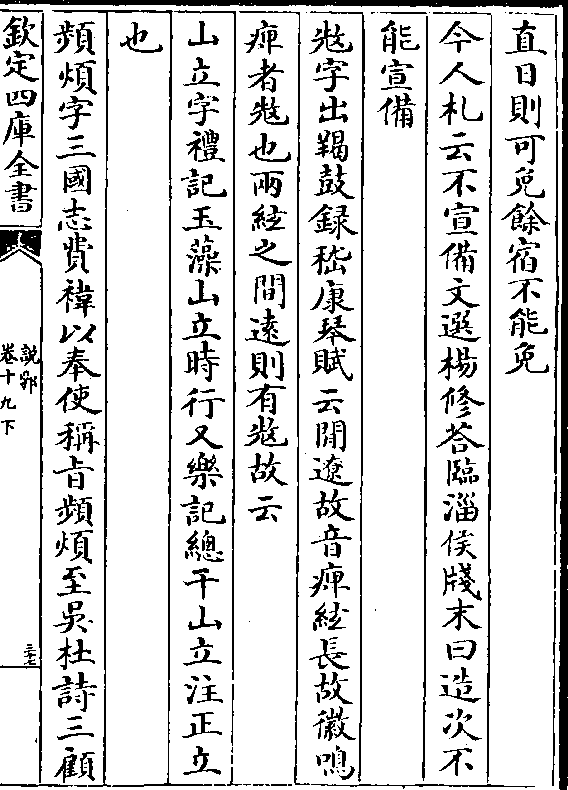 直日則可免餘宿不能免
今人札云不宣備文選楊修荅臨淄侯牋末曰造次不
能宣備
㢢字出羯鼓録嵇康琴賦云閒遼故音痺絃長故徽鳴
痺者㢢也兩絃之間逺則有㢢故云
山立字禮記玉藻山立時行又樂記總干山立注正立
也
頻煩字三國志費禕以奉使稱㫖頻煩至吳杜詩三顧
欽定四庫全書
說郛
卷十九下
三十二